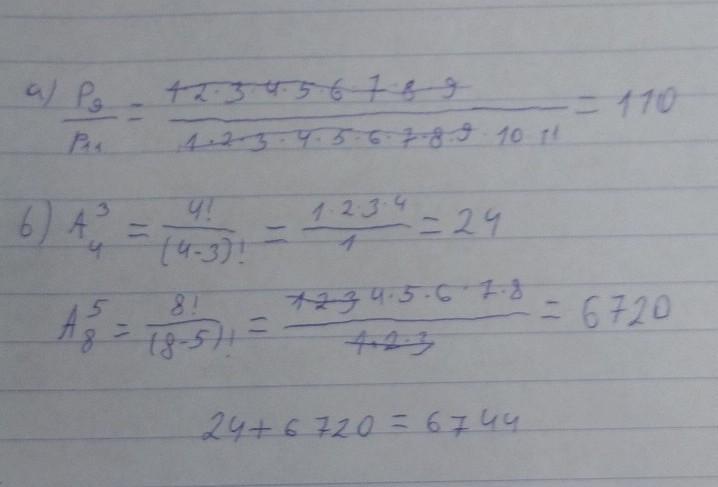 a) P₉/P₁₁ = 1·2·3·4·5·6·7·8·9 / 1·2·3·4·5·6·7·8·9·10·11 = 110
б) A₄³ = 4!/(4-3)! = 1·2·3·4/1 = 24
A₈⁵ = 8!/(8-5)! = 1·2·3·4·5·6·7·8/1·2·3 = 6720
24+6720=6744